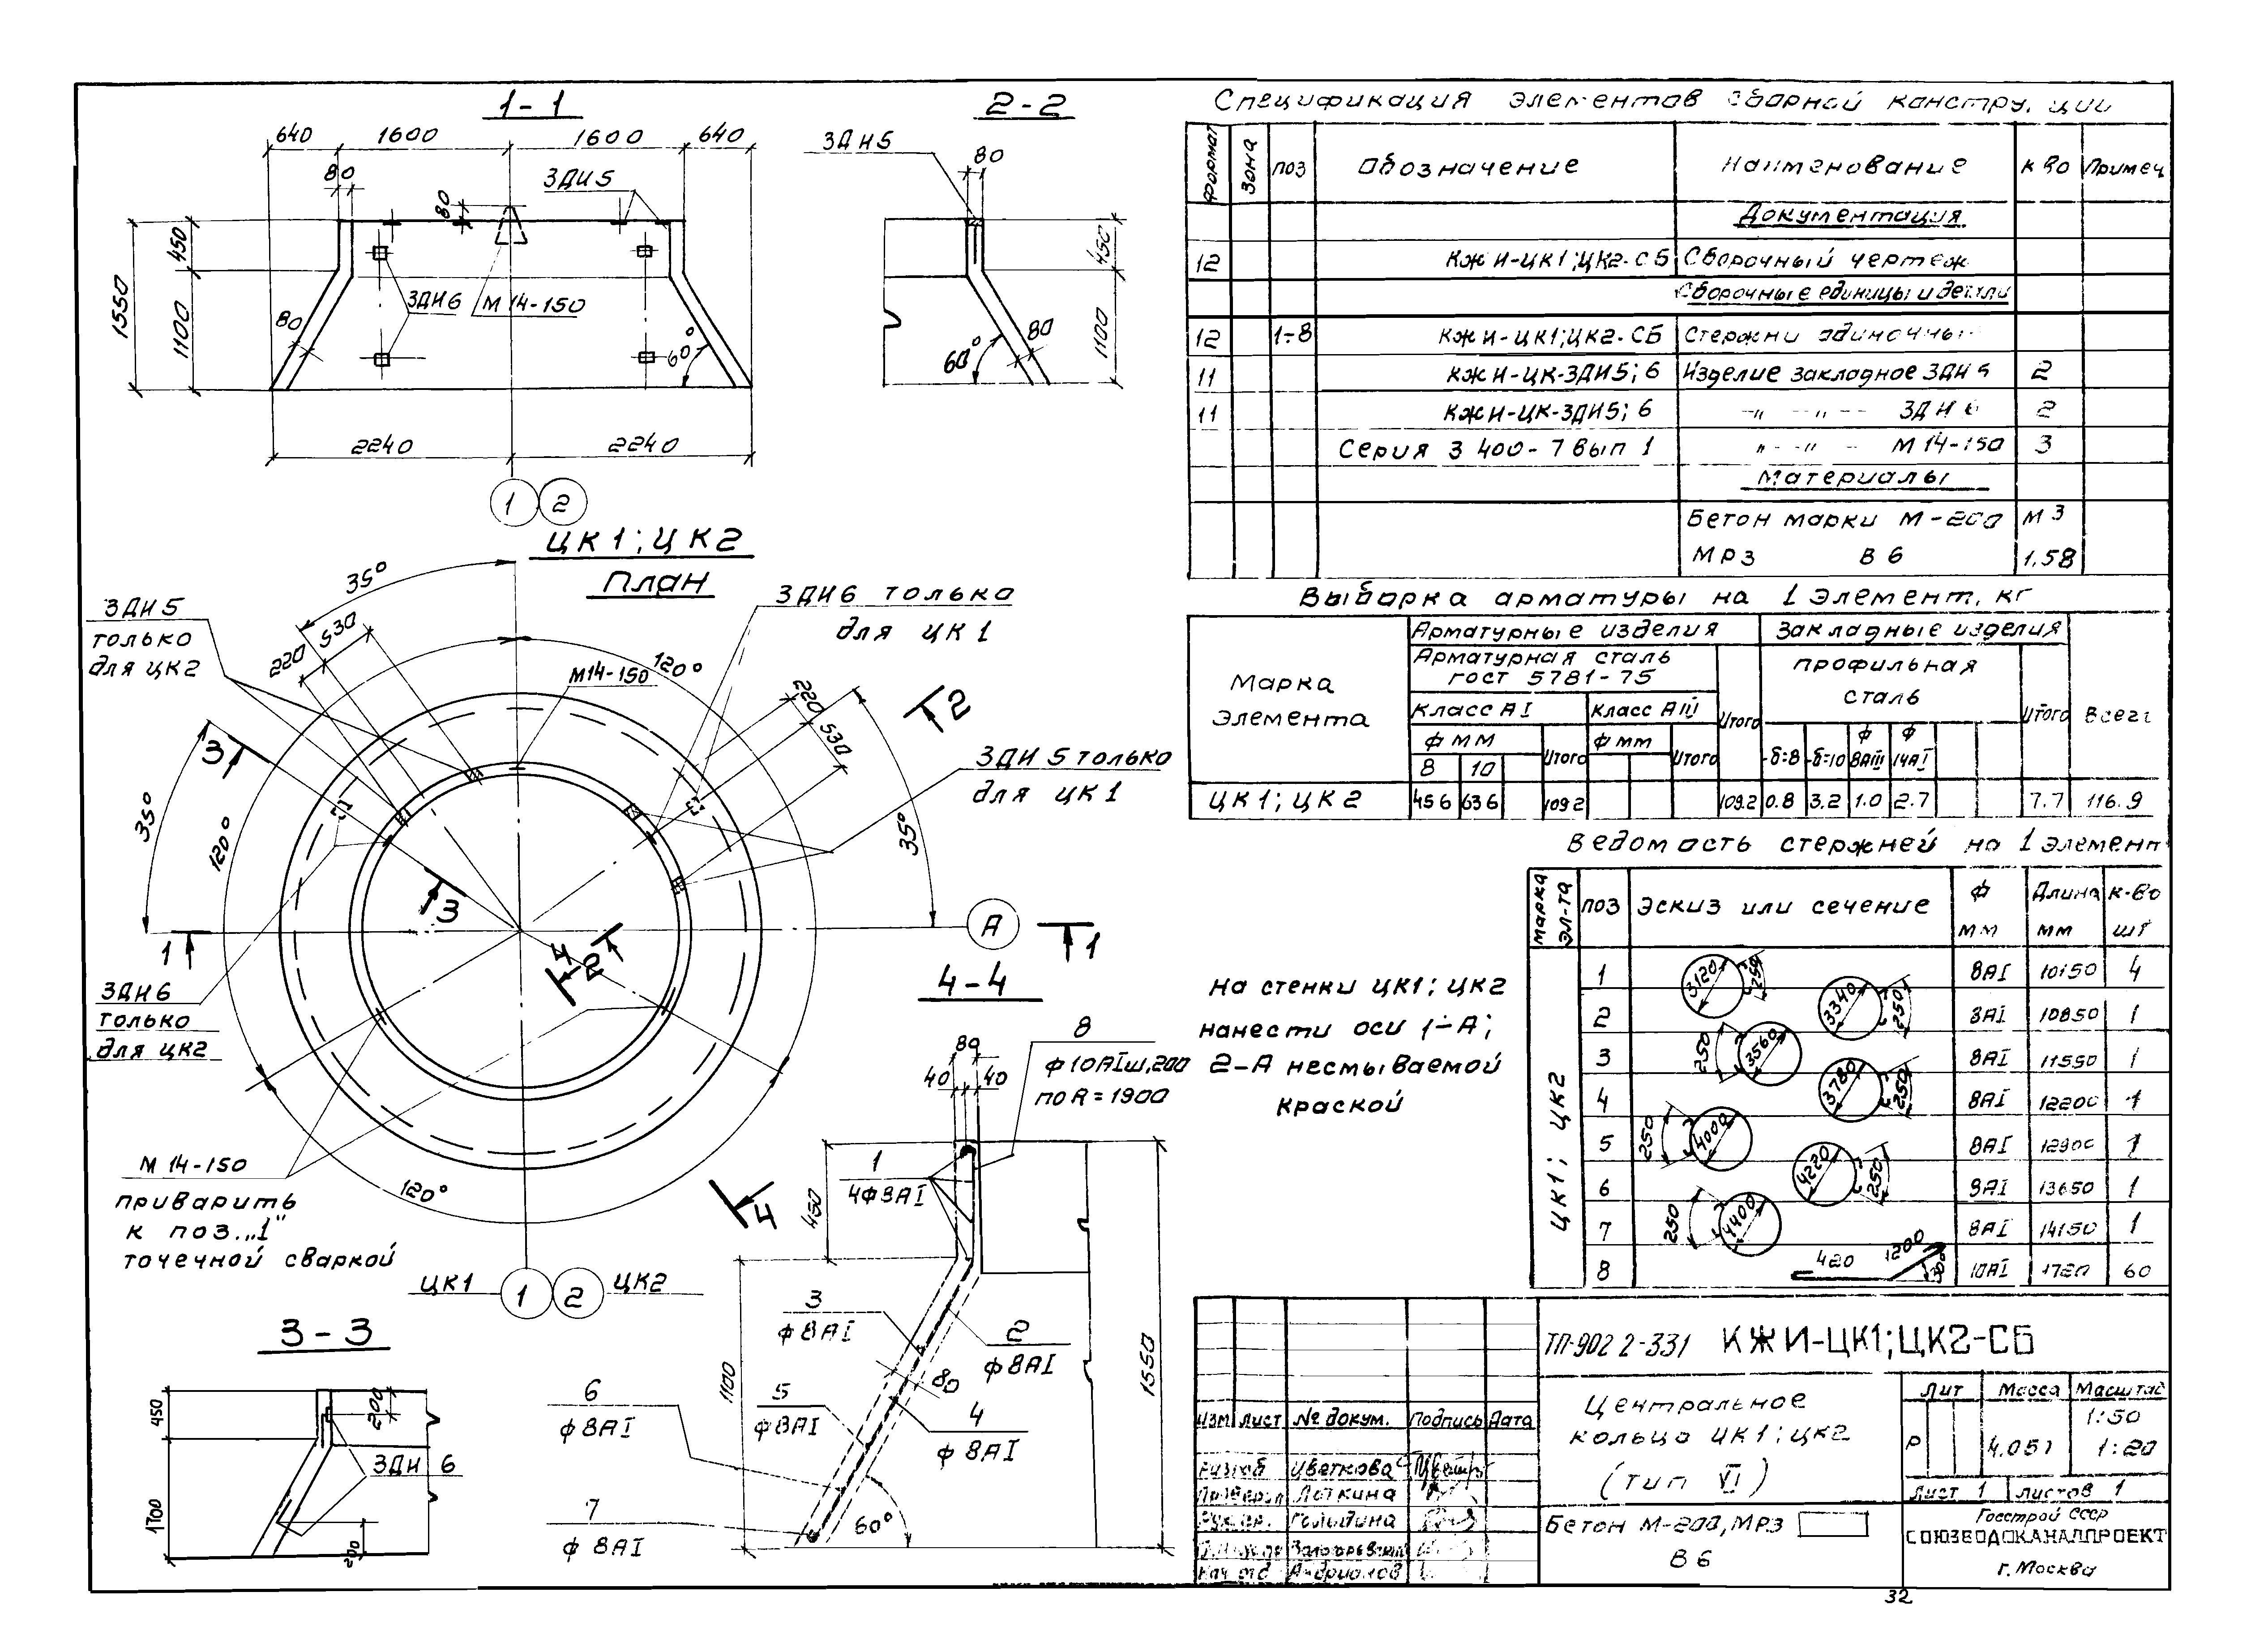 1-1
640 1600 1600 640
80
ЗДИ5
80
450
1550
1100
80
ЗДИ6
М14-150
60°
2240 2240
1 2
2-2
ЗДИ5
80
450
1100
80
60°
ЦК1; ЦК2
План
35°
530
220
ЗДИ5
только
для ЦК2
ЗДИ6 только
для ЦК1
М14-150
120°
220
530
2
3
ЗДИ5 только
для ЦК1
35°
120°
35°
3
А
1
1
4
2
ЗДИ6
только
для ЦК2
М14-150
приварить
к поз. „1"
точечной сваркой
120°
4
ЦК1 1 2 ЦК2
3-3
450
200
ЗДИ 6
1100
200
4-4
80
40 40
8
ф10АIш.200
по R=1900
1
4ф8АI
450
3
ф8АI
2
ф8АI
1100
1550
80
6
ф8АI
5
ф8АI
4
ф8АI
7
ф8АI
60°
На стенки ЦК1; ЦК2
нанести оси 1-А;
2-А несмываемой
краской
Спецификация элементов сборной
Формат Зона поз Обозначение Наименование К во Примеч
Документация
12 КЖИ-ЦК1;ЦК2-СБ Сборочный чертеж
Сборочные единицы и детали
12 1÷8 КЖИ-ЦК1;ЦК2-СБ Стержни
11 КЖИ-ЦК-ЗДИ5;6 Изделие закладное ЗДИ5 2
11 КЖИ-ЦК-ЗДИ5;6 -"- -"- ЗДИ6 2
Серия 3 400-7 вып 1 -"- -"- М14-150 3
Материалы
Бетон марки М-200 М3
МРЗ В6 1.58
Выборка арматуры на 1 элемент, кг
Марка элемента
Арматурные изделия Закладные изделия
Арматурная сталь
гост 5781-75
профильная
сталь
Класс АI Класс АIII Итого Итого Всего
ф мм Итого ф мм Итого
8 10 -δ=8 -δ=10 ф 8АIII ф 14АI
ЦК1; ЦК2 45 6 63 6 109 2 109.2 0.8 3.2 1.0 2.7 7.7 116.9
Ведомость стержней на 1 элемент
Марка эл-та поз Эскиз или сечение ф мм Длина мм к-во шт
ЦК1; ЦК2
1 3120 250 8АI 10150 4
2 3340 250 8АI 10850 1
3 250 3560 8АI 11550 1
4 3780 250 8АI 12200 1
5 250 4000 8АI 12900 1
6 4220 250 8АI 13650 1
7 250 4400 8АI 14150 1
8 420 1200 10АI 1720 60
ТП-902 2-331 КЖИ-ЦК1;ЦК2-СБ
Центральное
кольцо ЦК1; ЦК2
(тип VI)
Лит Масса Масштаб
Р 1:50
1:20
Лист 1 листов 1
Изм Лист № докум. Подпись Дата
Разраб Цветкова
Лоткина
Рук.гр.
Нач отд Андрианов
Бетон М-200, МРЗ
В6
Госстрой СССР
СОЮЗВОДОКАНАЛПРОЕКТ
г. Москва
32